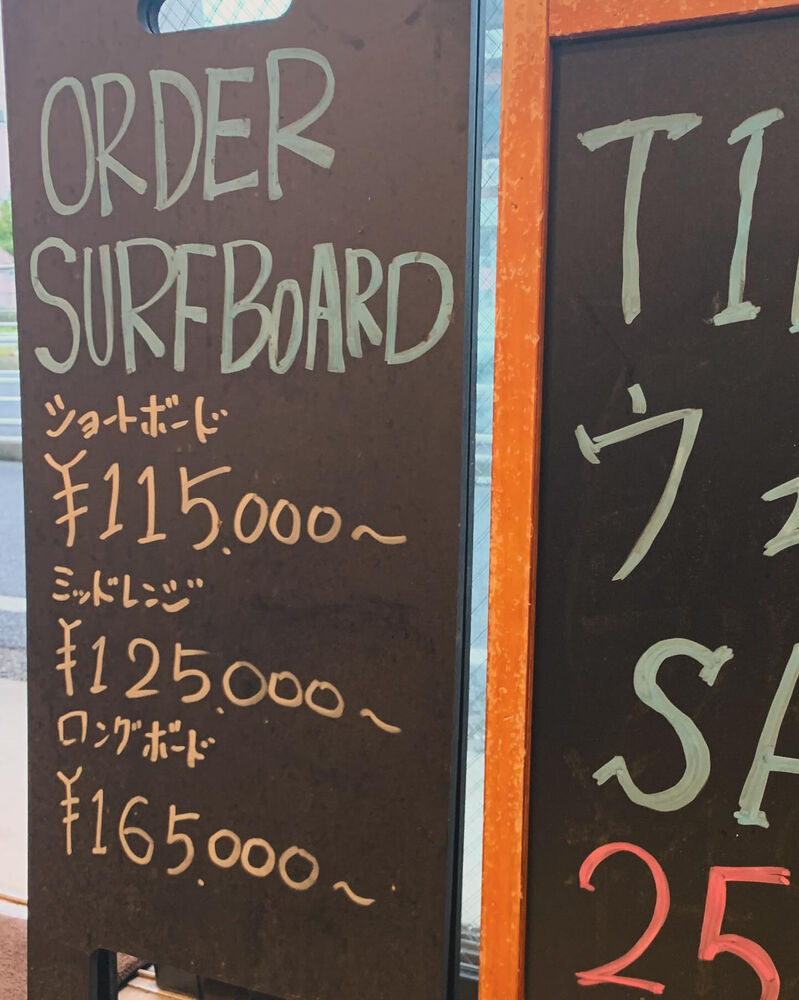 ORDER
SURFBOARD
ショートボード
¥115.000～
ミッドレンジ
¥125.000～
ロングボード
¥165.000～
TI
ウ
SA
25